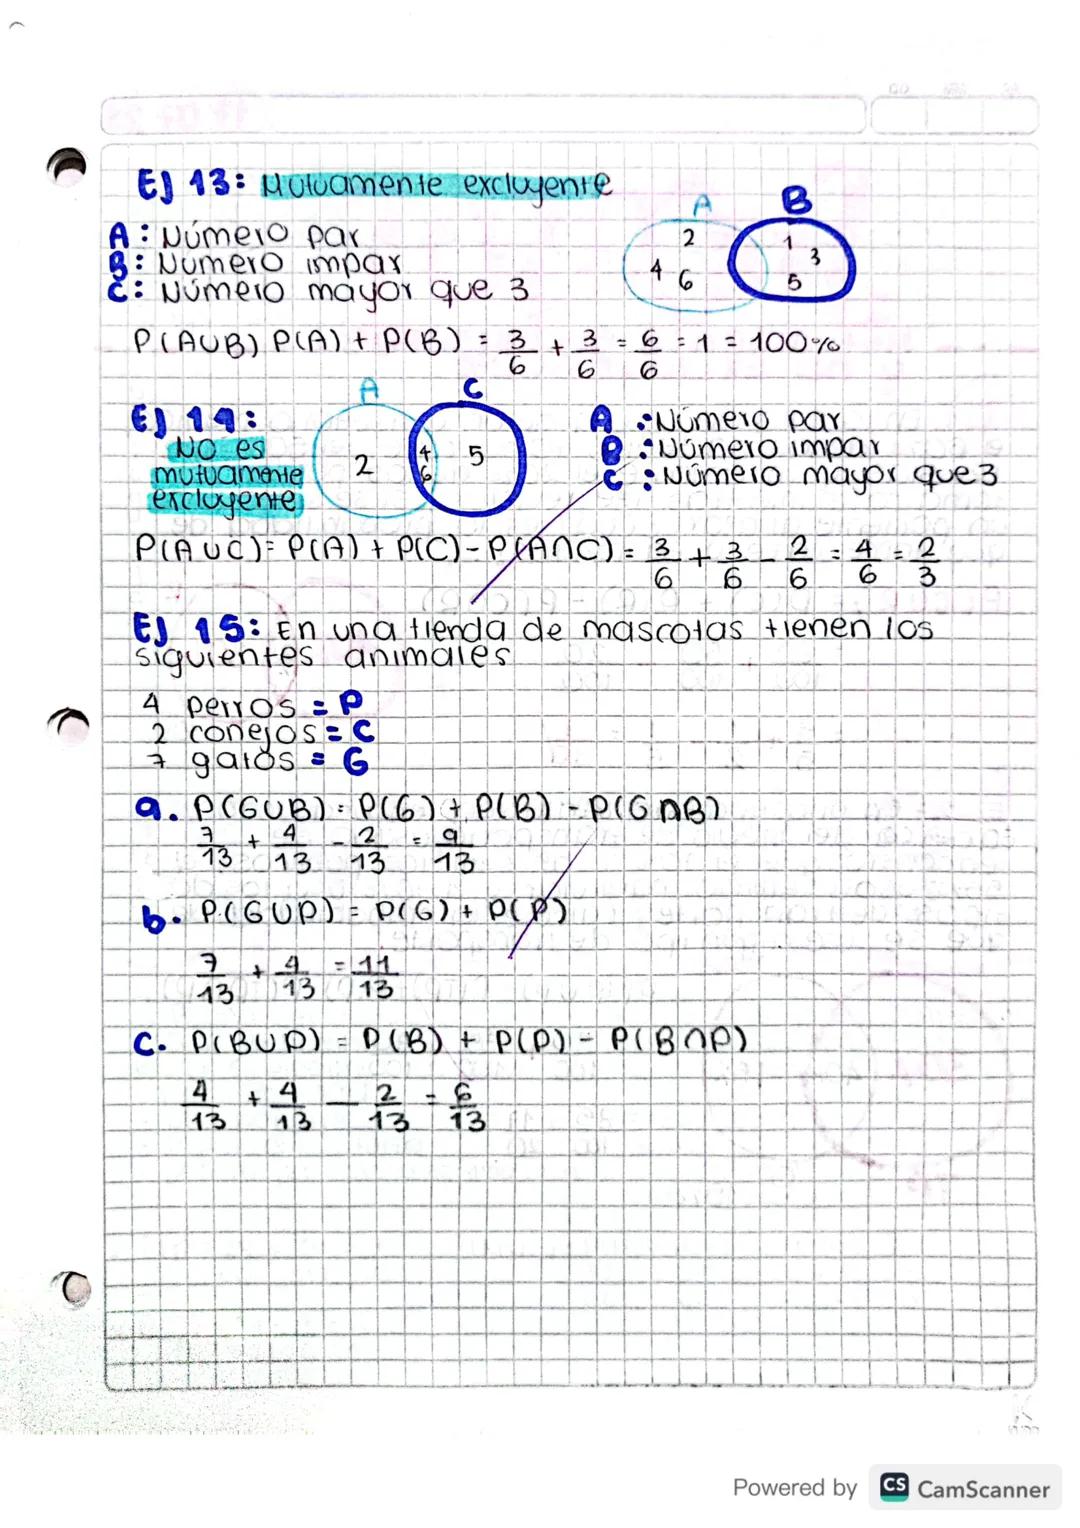 Ej 13: Mutuamente excluyente
A: Número par
B: Número impar
C: Número mayor que 3
A B
2 4 6 1 3 5
P(A∪B) P(A) + P(B) = 3/6 + 3/6 = 6/6 = 1 = 100%
Ej 14:
NO es
mutuamente
excluyente
A C
2 4 6 5
A : Número par
B : Número impar
C : Número mayor que 3
P(A∪C) = P(A) + P(C) - P(A∩C) = 3/6 + 3/6 - 2/6 = 4/6 = 2/3
Ej 15: En una tienda de mascotas tienen los
siguientes animales
4 perros = P
2 conejos = C
7 gatos = G
a. P(G∪B) = P(G) + P(B) - P(G∩B)
7/13 + 4/13 - 2/13 = 9/13
b. P(G∪P) = P(G) + P(P)
7/13 + 4/13 = 11/13
c. P(B∪P) = P(B) + P(P) - P(B∩P)
4/13 + 4/13 - 2/13 = 6/13
Powered by CS CamScanner